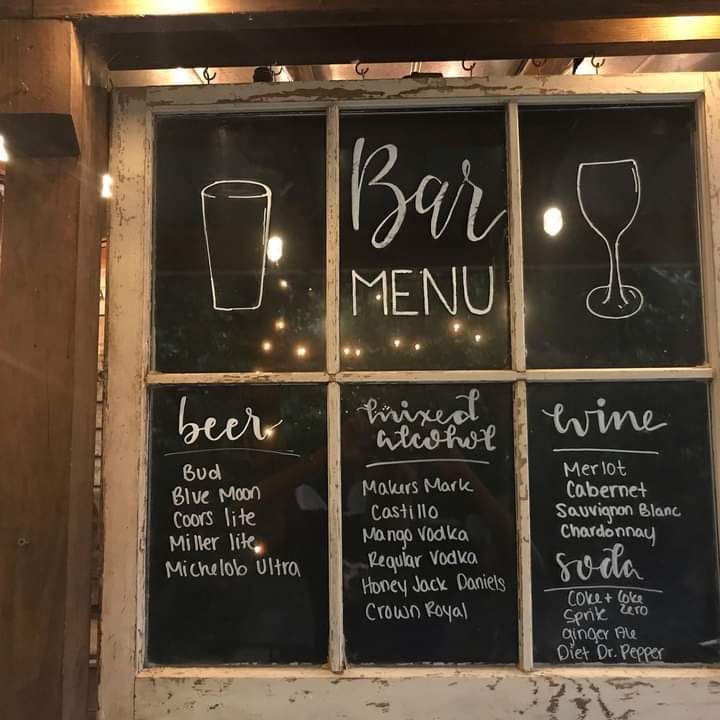 Bar
MENU
beer
Bud
Blue Moon
Coors lite
Miller lite
Michelob Ultra
mixed
alcohol
Makers Mark
Castillo
Mango Vodka
Regular Vodka
Honey Jack Daniels
Crown Royal
wine
Merlot
Cabernet
Sauvignon Blanc
Chardonnay
soda
Coke + Coke
zero
Sprite
ginger Ale
Diet Dr. Pepper